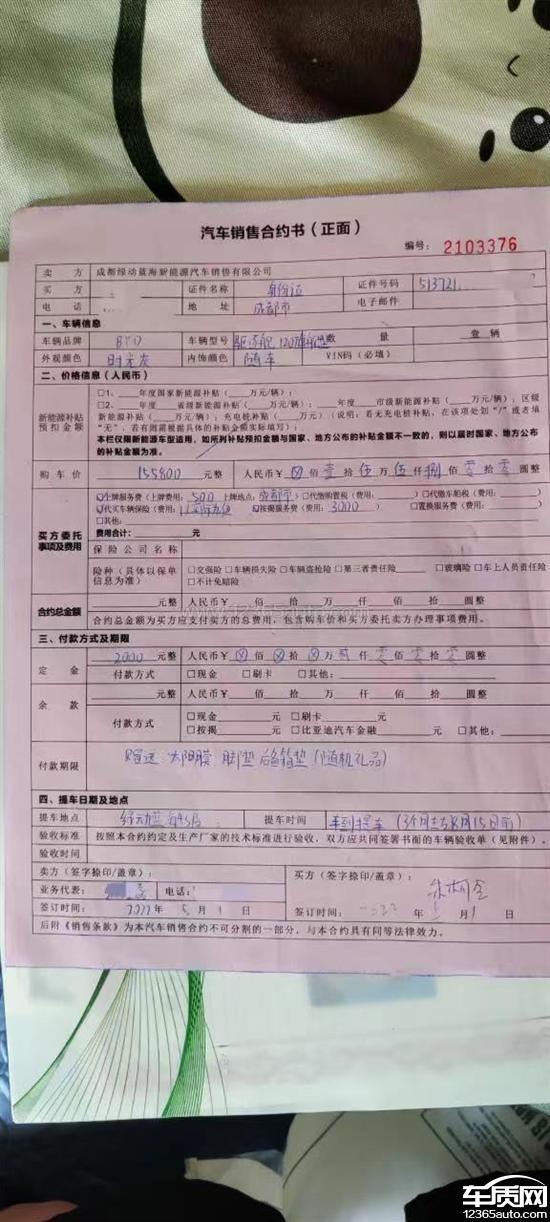 汽车销售合约书（正面）
编号：2103376
卖方 成都绿动蓝海新能源汽车销售有限公司
买方 证件名称 身份证 证件号码 513721
电话 地址 成都市 电子邮件
一、车辆信息
车辆品牌 BYD 车辆型号 驱逐舰 120 数量 壹辆
外观颜色 时光灰 内饰颜色 随车 VIN码（必填）
二、价格信息（人民币）
新能源补贴预扣金额
□1、____年度国家新能源补贴（____万元/辆）；
□2、____年度____省级新能源补贴（____万元/辆）；____年度____市级新能源补贴（____万元/辆）；区级
新能源补贴（____万元/辆）；充电桩补贴（____万元）（说明：若无充电桩补贴，在该项处划“/”或者填
“无”，若有则需根据具体的补贴金额实际填写）；
本栏仅限新能源车型适用，如所列补贴预扣金额与国家、地方公布的补贴金额不一致的，则以届时国家、地方公布
的补贴金额为准。
购车价 155800 元整 人民币￥ ⊗ 佰 壹 拾 伍 万 伍 仟 捌 佰 零 拾 零 圆整
买方委托事项及费用
上牌服务费（上牌费用：500 上牌地点：成都市）□代缴购置税（费用：____）□代缴车船税（费用：____）
代买车辆保险（费用： ）按揭服务费（费用：3000）□置换服务费（费用：____）
□其他：
费用合计：____元
保险公司名称
险种（具体以保单信息为准） □交强险 □车辆损失险 □车辆盗抢险 □第三者责任险____ □玻璃险 □车上人员责任险
□不计免赔险
合约总金额 元整 人民币￥ 佰 拾 万 仟 佰 拾 圆整
合约总金额为买方应支付卖方的总费用，包含购车价和买方委托卖方办理事项费用。
三、付款方式及期限
定金 2000 元整 人民币￥ ⊗ 佰 ⊗ 拾 ⊗ 万 贰 仟 零 佰 零 拾 零 圆整
付款方式 □现金 □刷卡 □其他：
余款 元整 人民币￥ 佰 拾 万 仟 佰 拾 圆整
付款方式 □现金____元 □刷卡____元
□按揭____元 □比亚迪汽车金融____元 □其他：
付款期限 赠送：太阳膜 脚垫 后备箱垫（随机礼品）
四、提车日期及地点
提车地点 绿动蓝海4S店 提车时间 车到提车（3个月左右8月15日前）
验收标准 按照本合约约定及生产厂家的技术标准进行验收，双方应共同签署书面的车辆验收单（见附件）。
验收时间
卖方（签字捺印/盖章）： 买方（签字捺印/盖章）：
业务代表： 电话：
签订时间： 2022 年 5 月 1 日 签订时间： 2022 年 5 月 1 日
后附《销售条款》为本汽车销售合约不可分割的一部分，与本合约具有同等法律效力。
车质网
12365auto.com